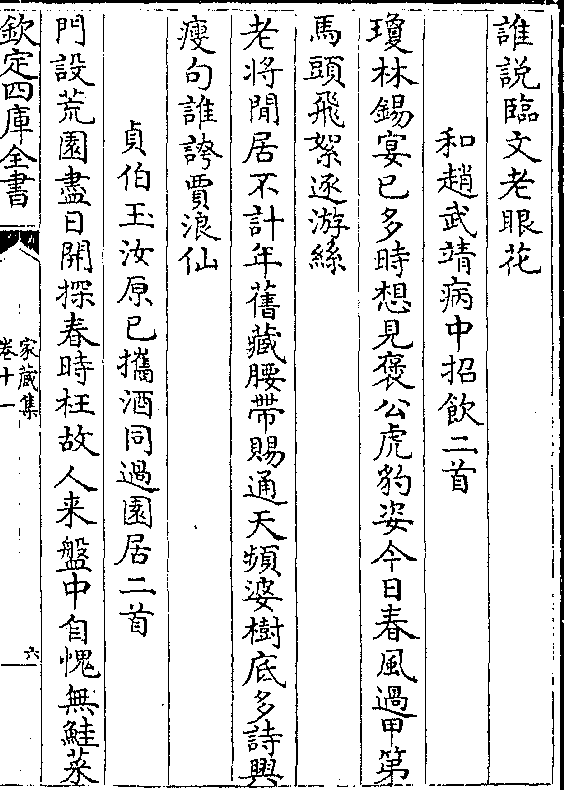 誰説臨文老眼花
和趙武靖病中招飲二首
瓊林錫宴已多時想見褒公虎豹姿今日春風過甲第
馬頭飛絮逐游絲
老將閒居不計年舊藏腰帶賜通天頻婆樹底多詩興
瘦句誰誇賈浪仙
貞伯玉汝原已攜酒同過園居二首
門設荒園盡日開探春時枉故人来盤中自愧無鮭菜
欽定四庫全書
家藏集
卷十一
六